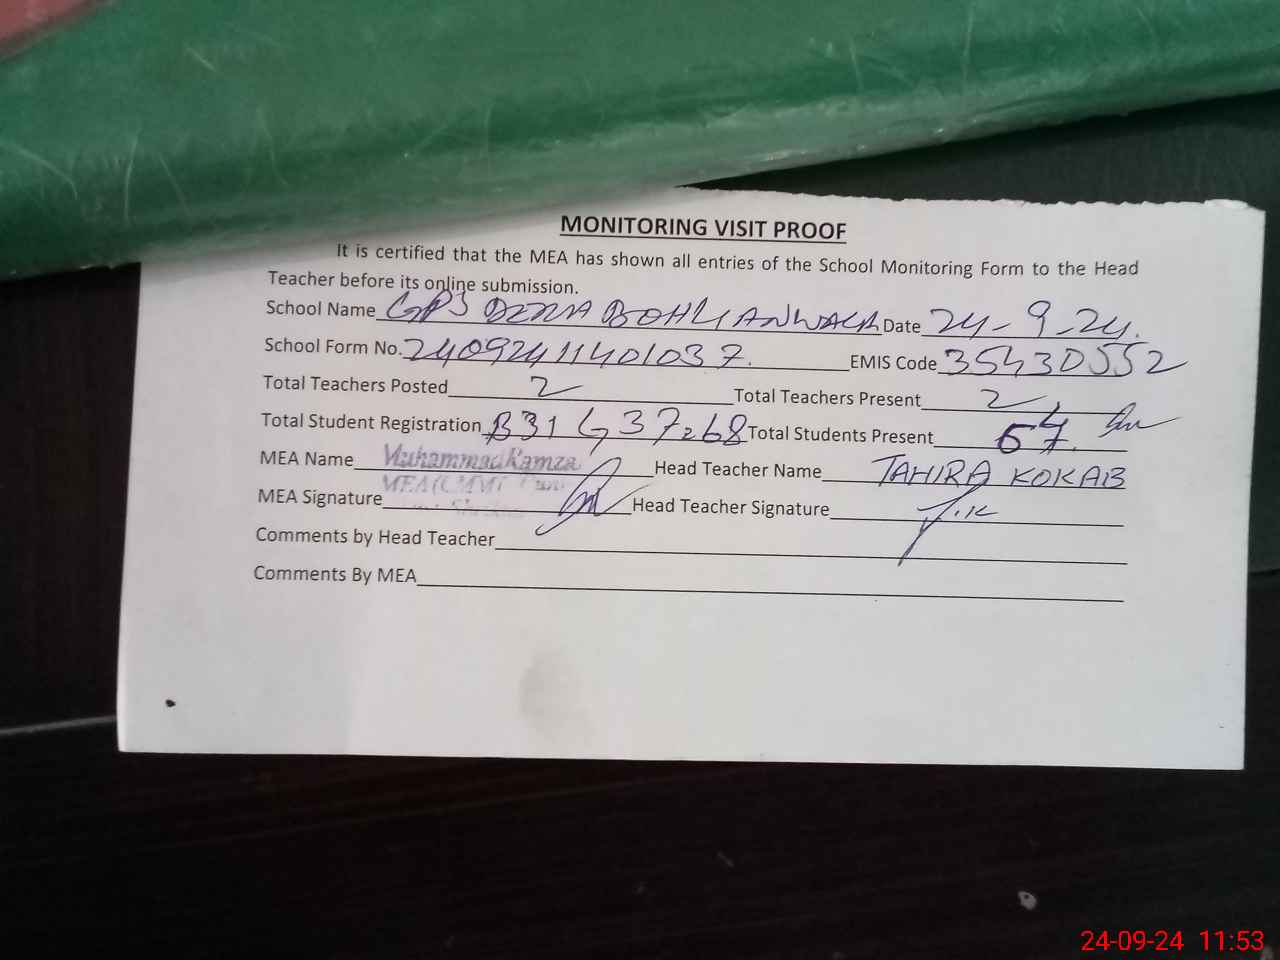 MONITORING VISIT PROOF
It is certified that the MEA has shown all entries of the School Monitoring Form to the Head
Teacher before its online submission.
School Name GPS DERA BOHLIANWALA Date 24-9-24.
School Form No. 24092411401037. EMIS Code 35430552
Total Teachers Posted 2 Total Teachers Present 2
Total Student Registration B31 G37=68 Total Students Present
MEA Name Muhammad Ramza Head Teacher Name TAHIRA KOKAB
MEA Signature Head Teacher Signature T.K
Comments by Head Teacher
Comments By MEA
24-09-24 11:53